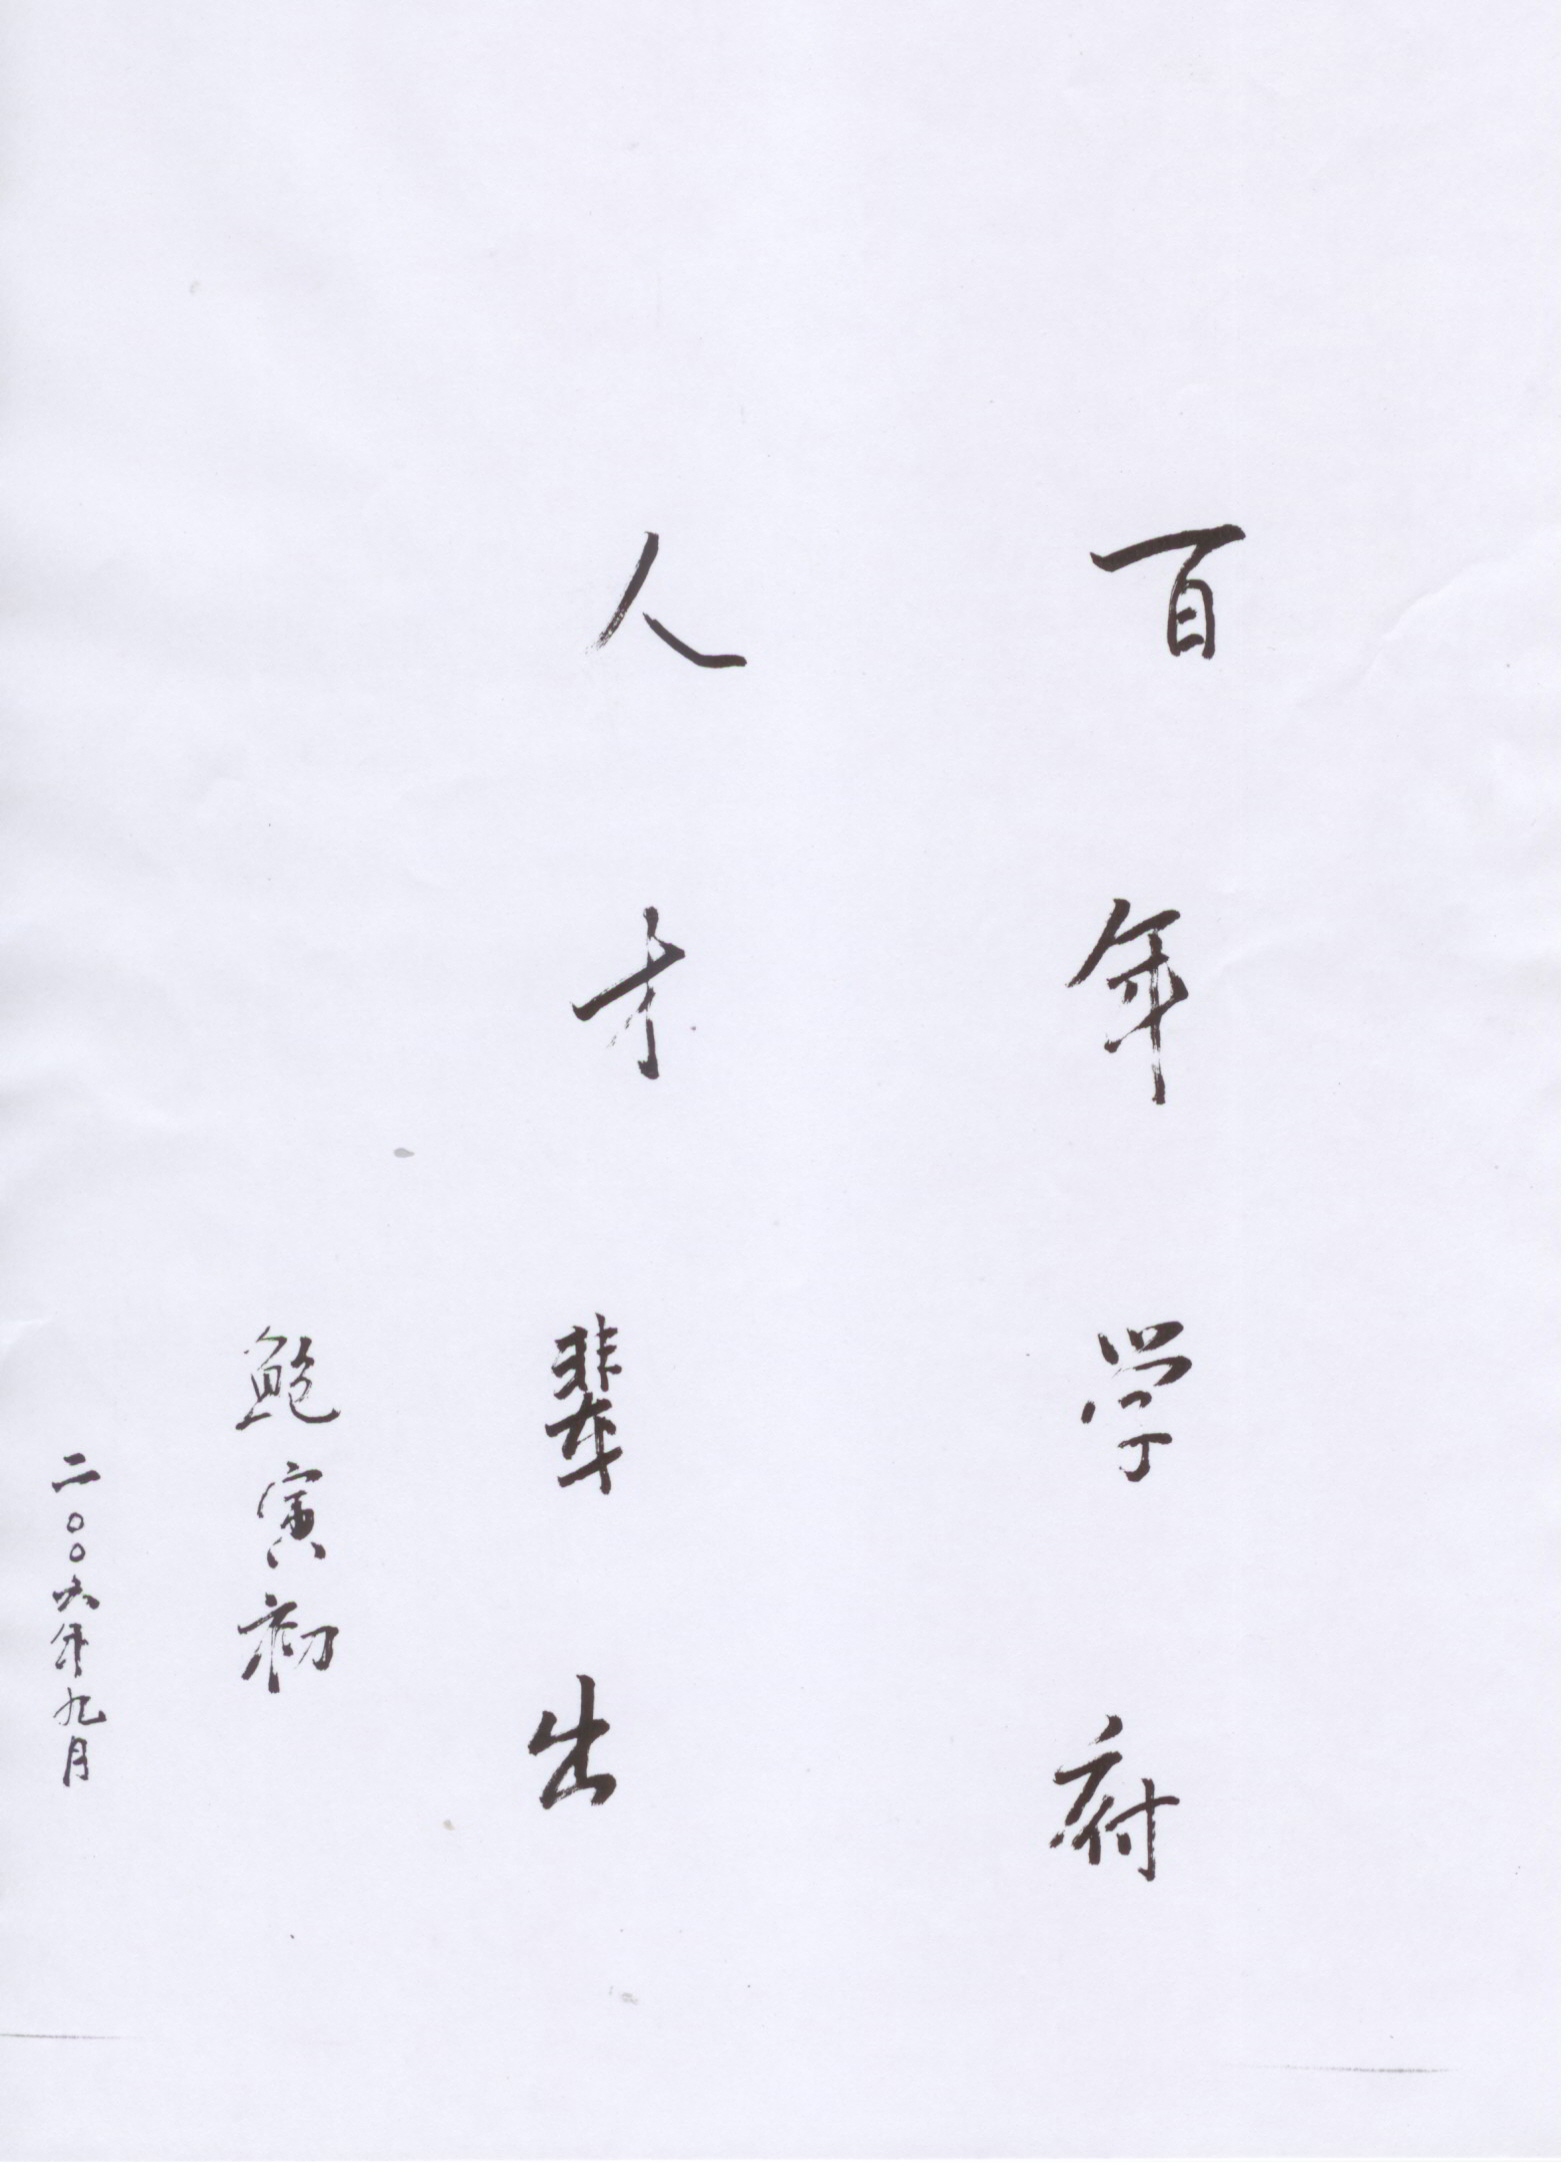 百年学府
人才辈出
鲍寅初
二〇〇六年九月